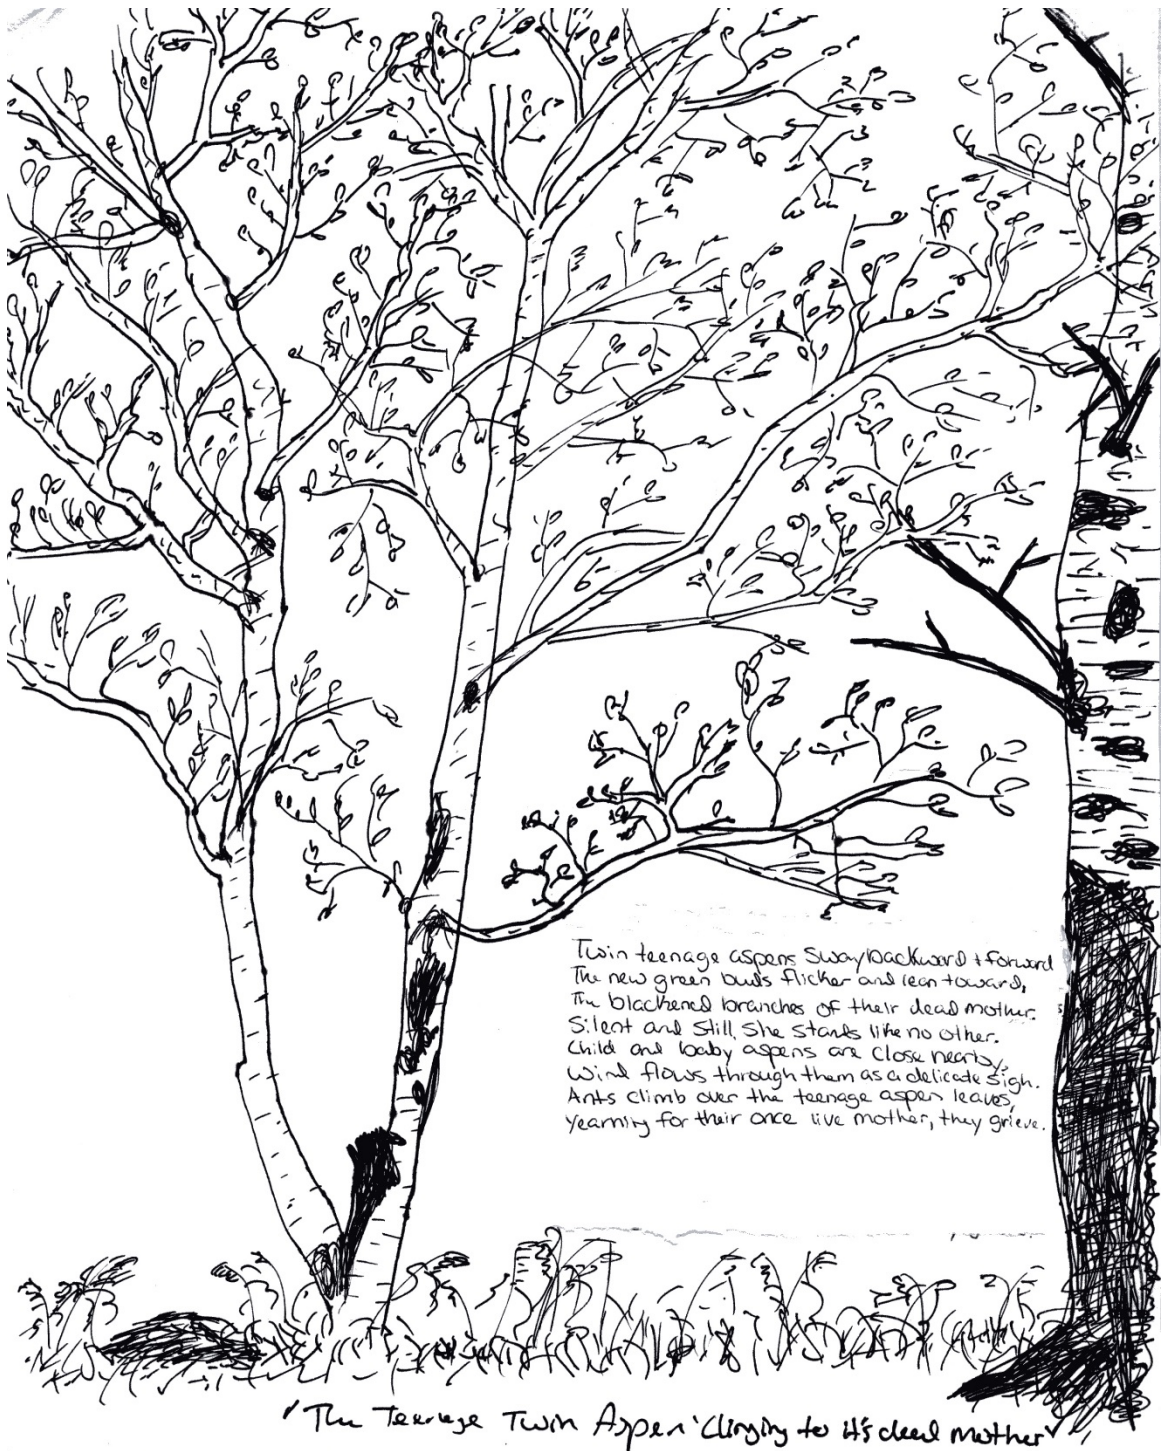 Twin teenage aspens Sway backward + forward
The new green buds flicker and lean toward,
The blackened branches of their dead mother.
Silent and Still, She stands like no other.
Child and baby aspens are close nearby,
Wind flows through them as a delicate sigh.
Ants climb over the teenage aspen leaves,
Yearning for their once live mother, they grieve.
"The Teenage Twin Aspen 'Clinging to it's dead mother'"